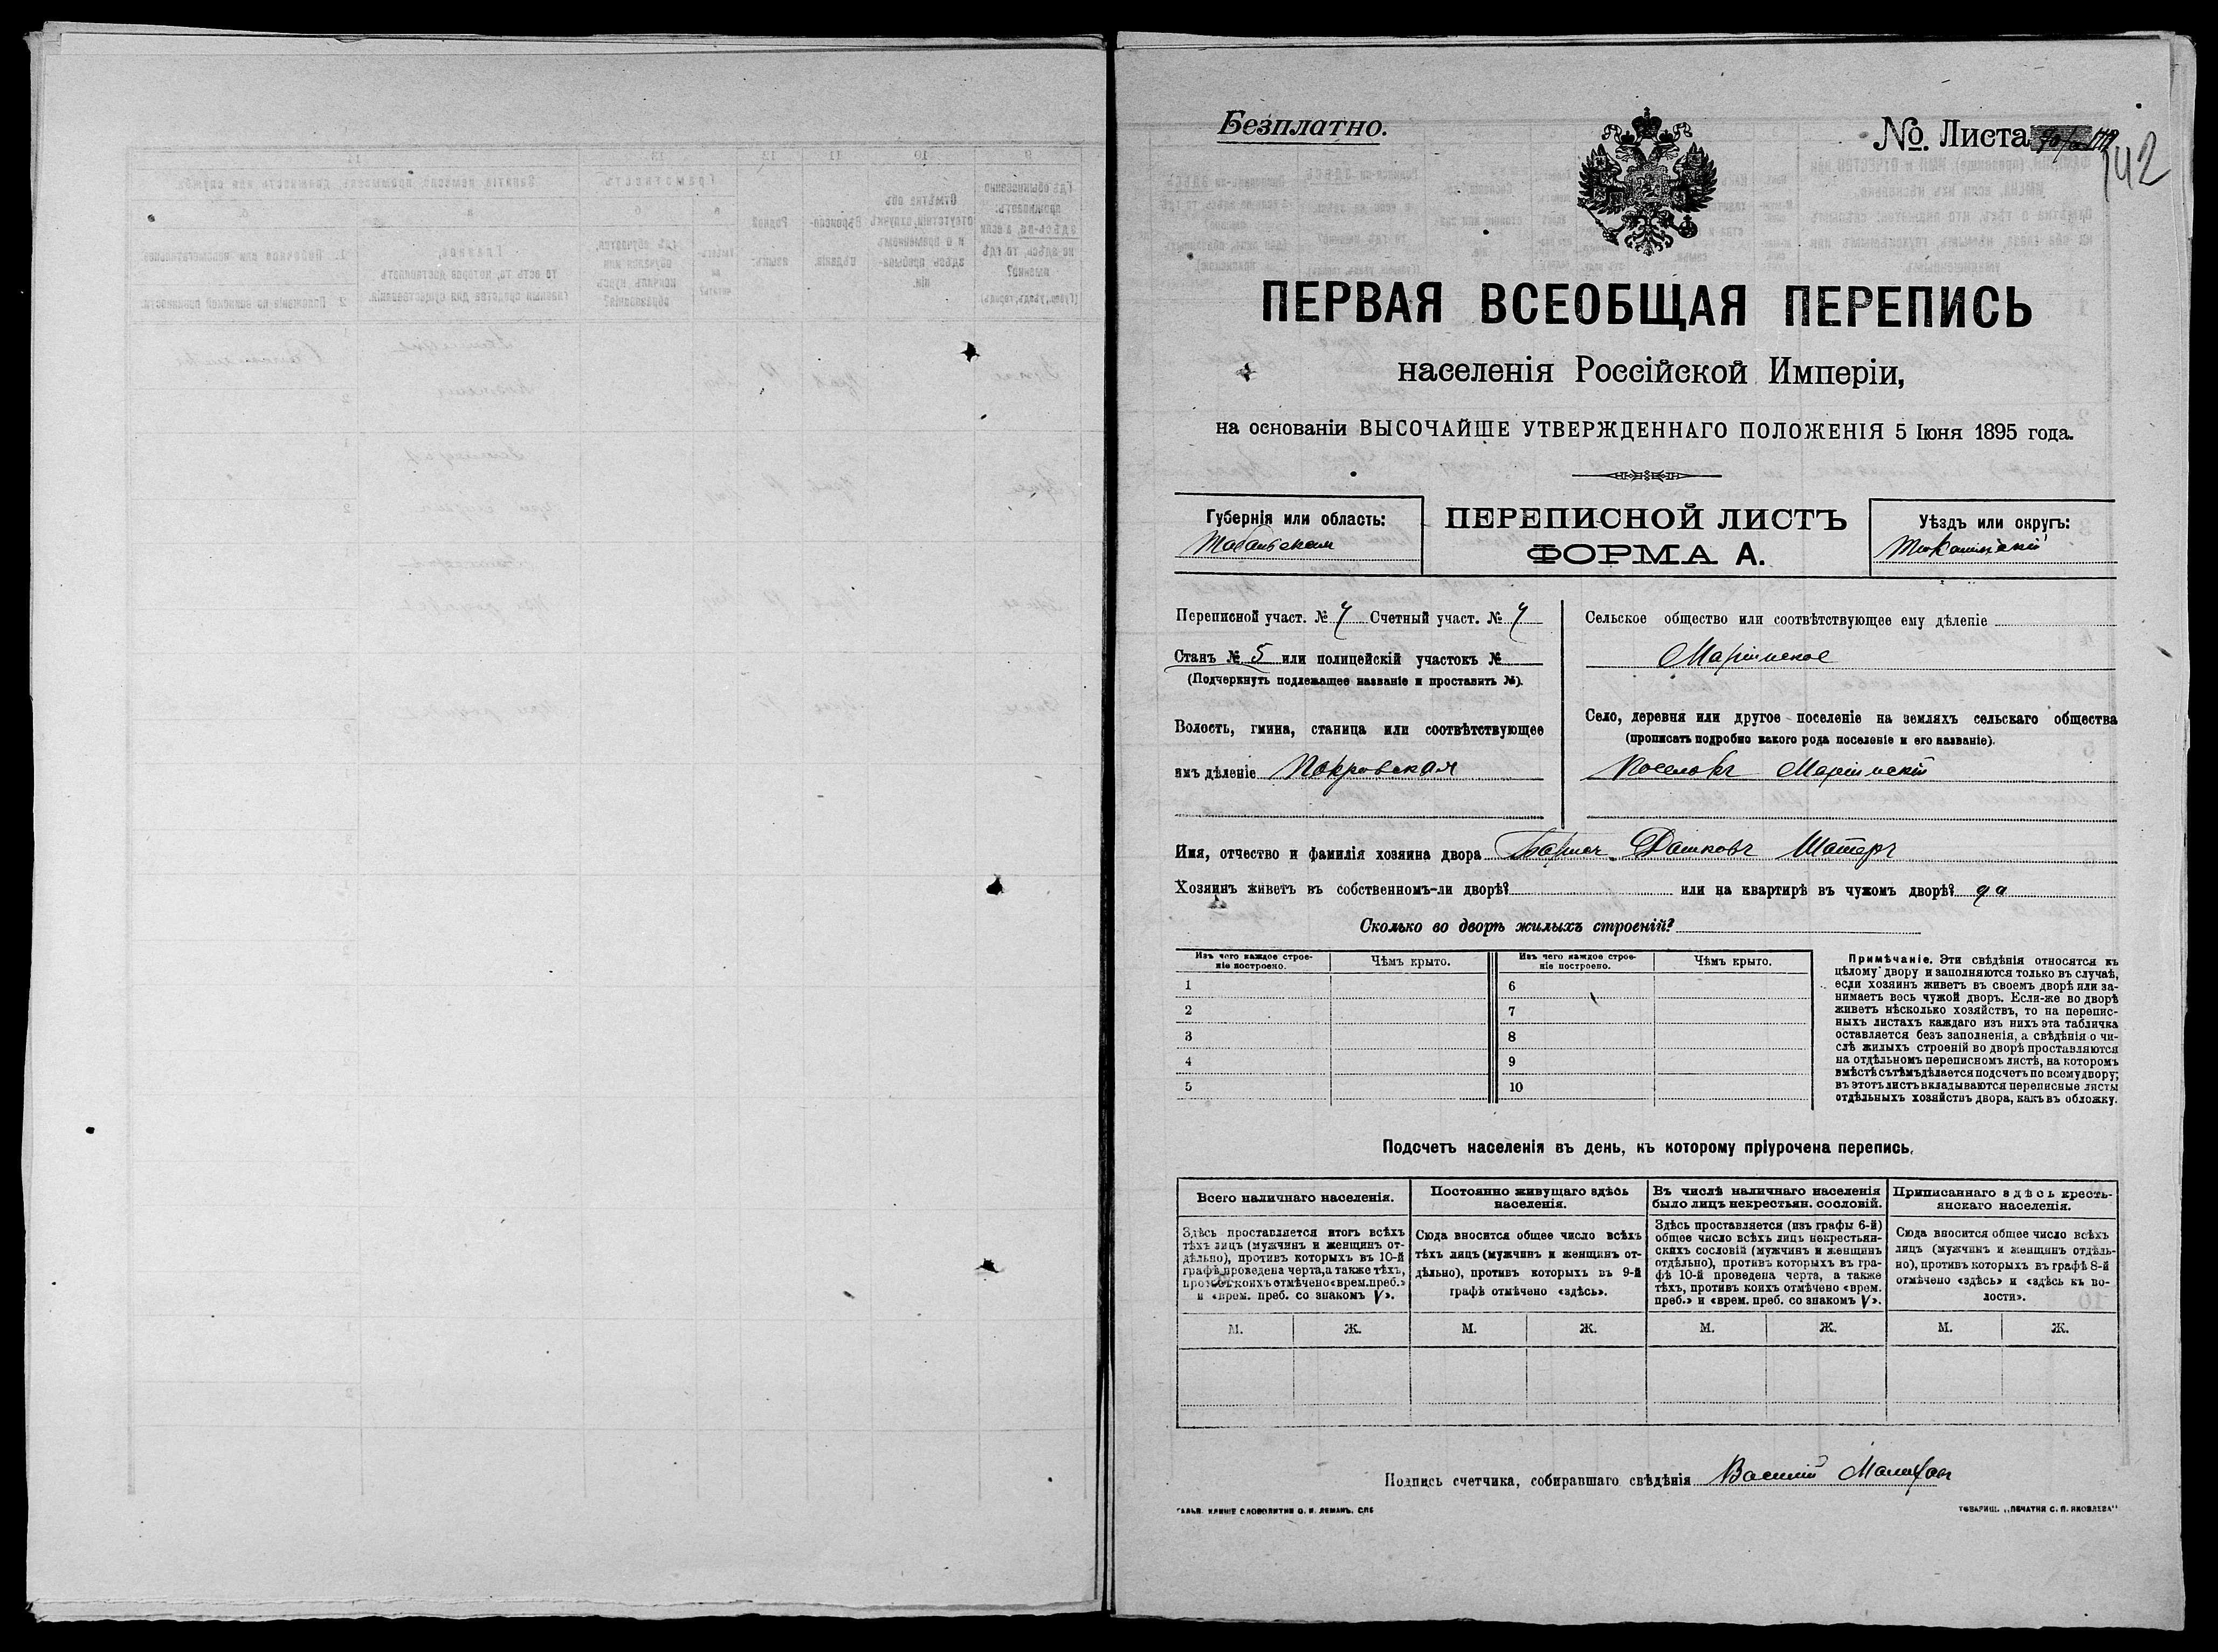 Безплатно.
№ Листа
142
ПЕРВАЯ ВСЕОБЩАЯ ПЕРЕПИСЬ
населенія Россійской Имперіи,
на основаніи ВЫСОЧАЙШЕ УТВЕРЖДЕННАГО ПОЛОЖЕНІЯ 5 Іюня 1895 года.
Губернія или область:
Тобольская
ПЕРЕПИСНОЙ ЛИСТЪ
ФОРМА А.
Уѣздъ или округъ:
Тюкалинскій
Переписной участ. № 4 Счетный участ. № 4
Станъ № 5 или полицейскій участокъ №
(Подчеркнуть подлежащее названіе и проставить №).
Волость, гмина, станица или соотвѣтствующее
имъ дѣленіе Покровская
Сельское общество или соотвѣтствующее ему дѣленіе
Маріинское
Село, деревня или другое поселеніе на земляхъ сельскаго общества
(прописать подробно какого рода поселеніе и его названіе).
Поселокъ Маріинскій
Имя, отчество и фамилія хозяина двора
Хозяинъ живетъ въ собственномъ-ли дворѣ? или на квартирѣ въ чужомъ дворѣ? да
Сколько во дворѣ жилыхъ строеній?
Изъ чего каждое строе-
ніе построено.
Чѣмъ крыто.
Изъ чего каждое строе-
ніе построено.
Чѣмъ крыто.
1 6
2 7
3 8
4 9
5 10
Примѣчаніе. Эти свѣдѣнія относятся къ
цѣлому двору и заполняются только въ случаѣ,
если хозяинъ живетъ въ своемъ дворѣ или за-
нимаетъ весь чужой дворъ. Если-же во дворѣ
живетъ нѣсколько хозяйствъ, то на перепис-
ныхъ листахъ каждаго изъ нихъ эта табличка
оставляется безъ заполненія, а свѣдѣнія о чи-
слѣ жилыхъ строеній во дворѣ проставляются
на отдѣльномъ переписномъ листѣ, на которомъ
вмѣстѣ съ тѣмъ дѣлается подсчетъ по всему двору;
въ этотъ листъ вкладываются переписные листы
отдѣльныхъ хозяйствъ двора, какъ въ обложку.
Подсчетъ населенія въ день, къ которому пріурочена перепись.
Всего наличнаго населенія.
Здѣсь проставляется итогъ всѣхъ
тѣхъ лицъ (мужчинъ и женщинъ от-
дѣльно), противъ которыхъ въ 10-й
графѣ проведена черта, а также тѣхъ,
противъ коихъ отмѣчено «врем. преб.»
и «врем. преб. со знакомъ V».
Постоянно живущаго здѣсь
населенія.
Сюда вносится общее число всѣхъ
тѣхъ лицъ (мужчинъ и женщинъ от-
дѣльно), противъ которыхъ въ 9-й
графѣ отмѣчено «здѣсь».
Въ числѣ наличнаго населенія
было лицъ некрестьян. сословій.
Здѣсь проставляется (изъ графы 6-й)
общее число всѣхъ лицъ некрестьян-
скихъ сословій (мужчинъ и женщинъ
отдѣльно), противъ которыхъ въ гра-
фѣ 10-й проведена черта, а также
тѣхъ, противъ коихъ отмѣчено «врем.
преб.» и «врем. преб. со знакомъ V».
Приписаннаго здѣсь кресть-
янскаго населенія.
Сюда вносится общее число всѣхъ
лицъ (мужчинъ и женщинъ отдѣль-
но), противъ которыхъ въ графѣ 8-й
отмѣчено «здѣсь» и «здѣсь къ во-
лости».
М. Ж. М. Ж. М. Ж. М. Ж.
Подпись счетчика, собиравшаго свѣдѣнія Василій
ГАЛЬВ. КЛИШЕ СЛОВОЛИТНИ О. И. ЛЕМАНЪ. СПБ
ТОВАРИЩ. „ПЕЧАТНЯ С. П. ЯКОВЛЕВА“